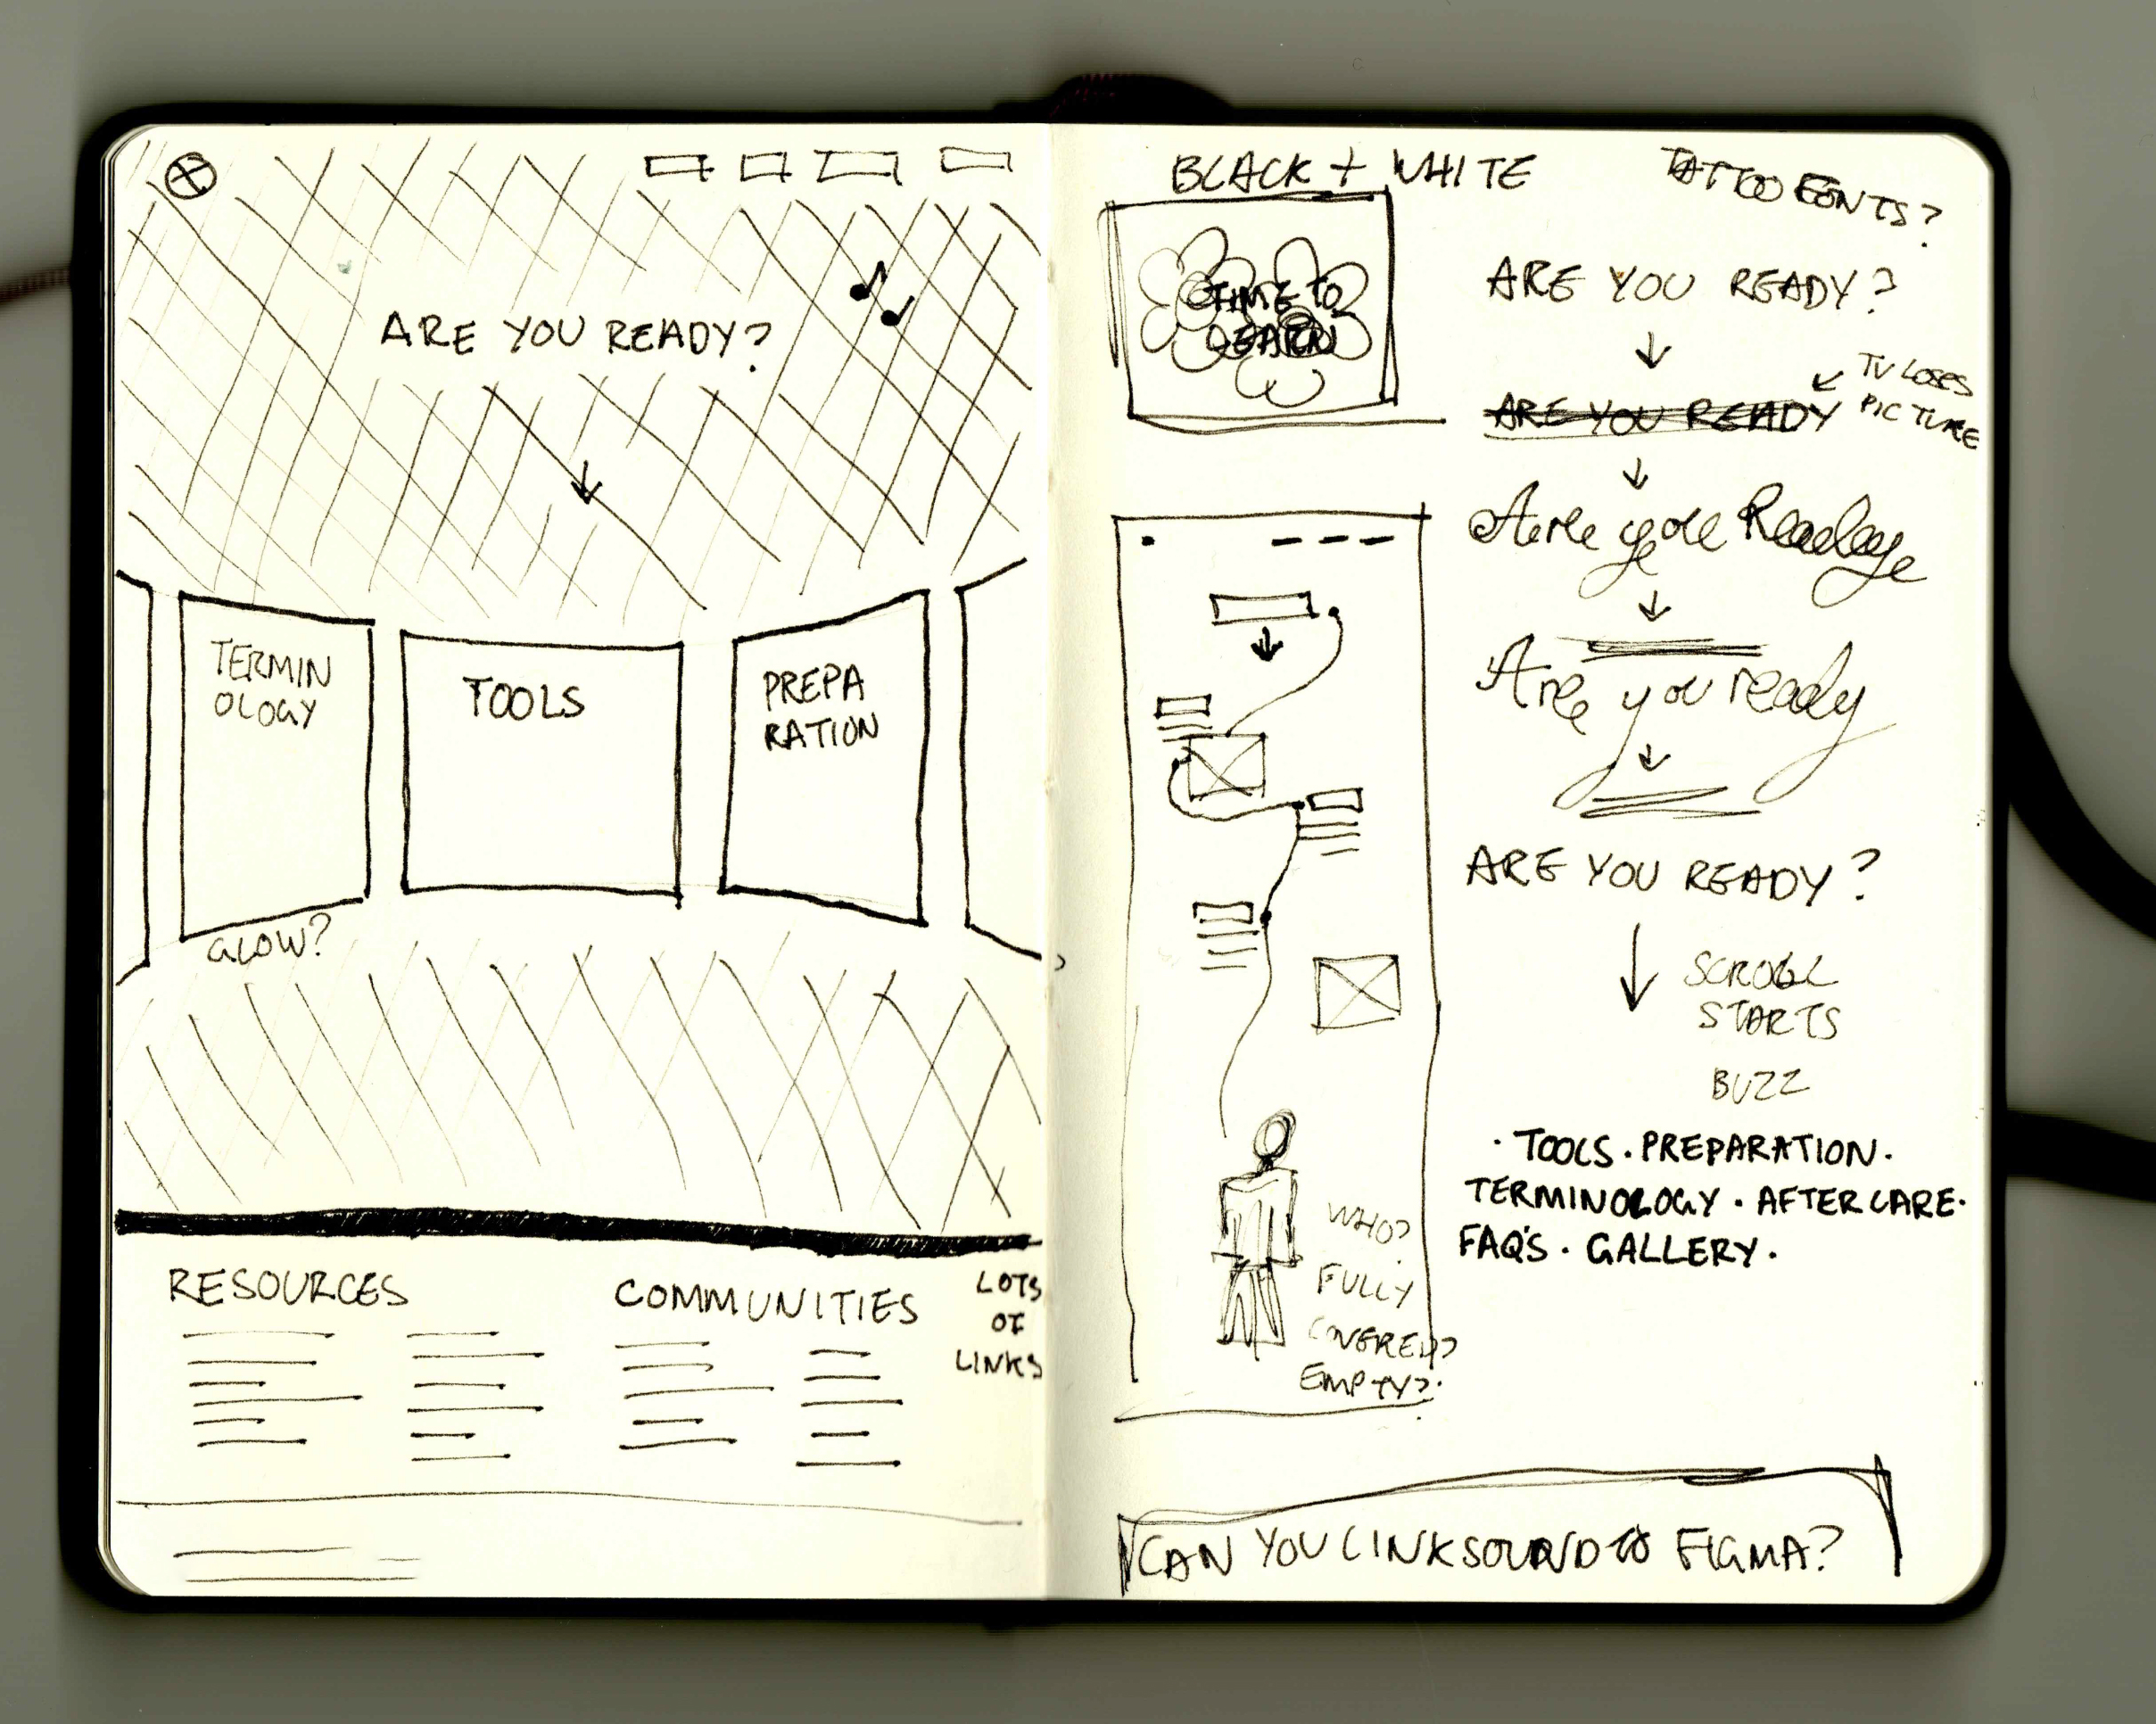 ARE YOU READY?
TERMIN
OLOGY
TOOLS
PREPA
RATION
GLOW?
RESOURCES
COMMUNITIES
LOTS
OF
LINKS
BLACK + WHITE
TATTOO FONTS?
TIME TO
LEARN
ARE YOU READY?
TV LOSES
PICTURE
ARE YOU READY
Are you Ready
Are you ready
ARE YOU READY?
SCROLL
STARTS
BUZZ
· TOOLS · PREPARATION ·
TERMINOLOGY · AFTERCARE ·
FAQ'S · GALLERY ·
WHO?
FULLY
COVERED?
EMPTY?
CAN YOU LINK SOUND TO FIGMA?